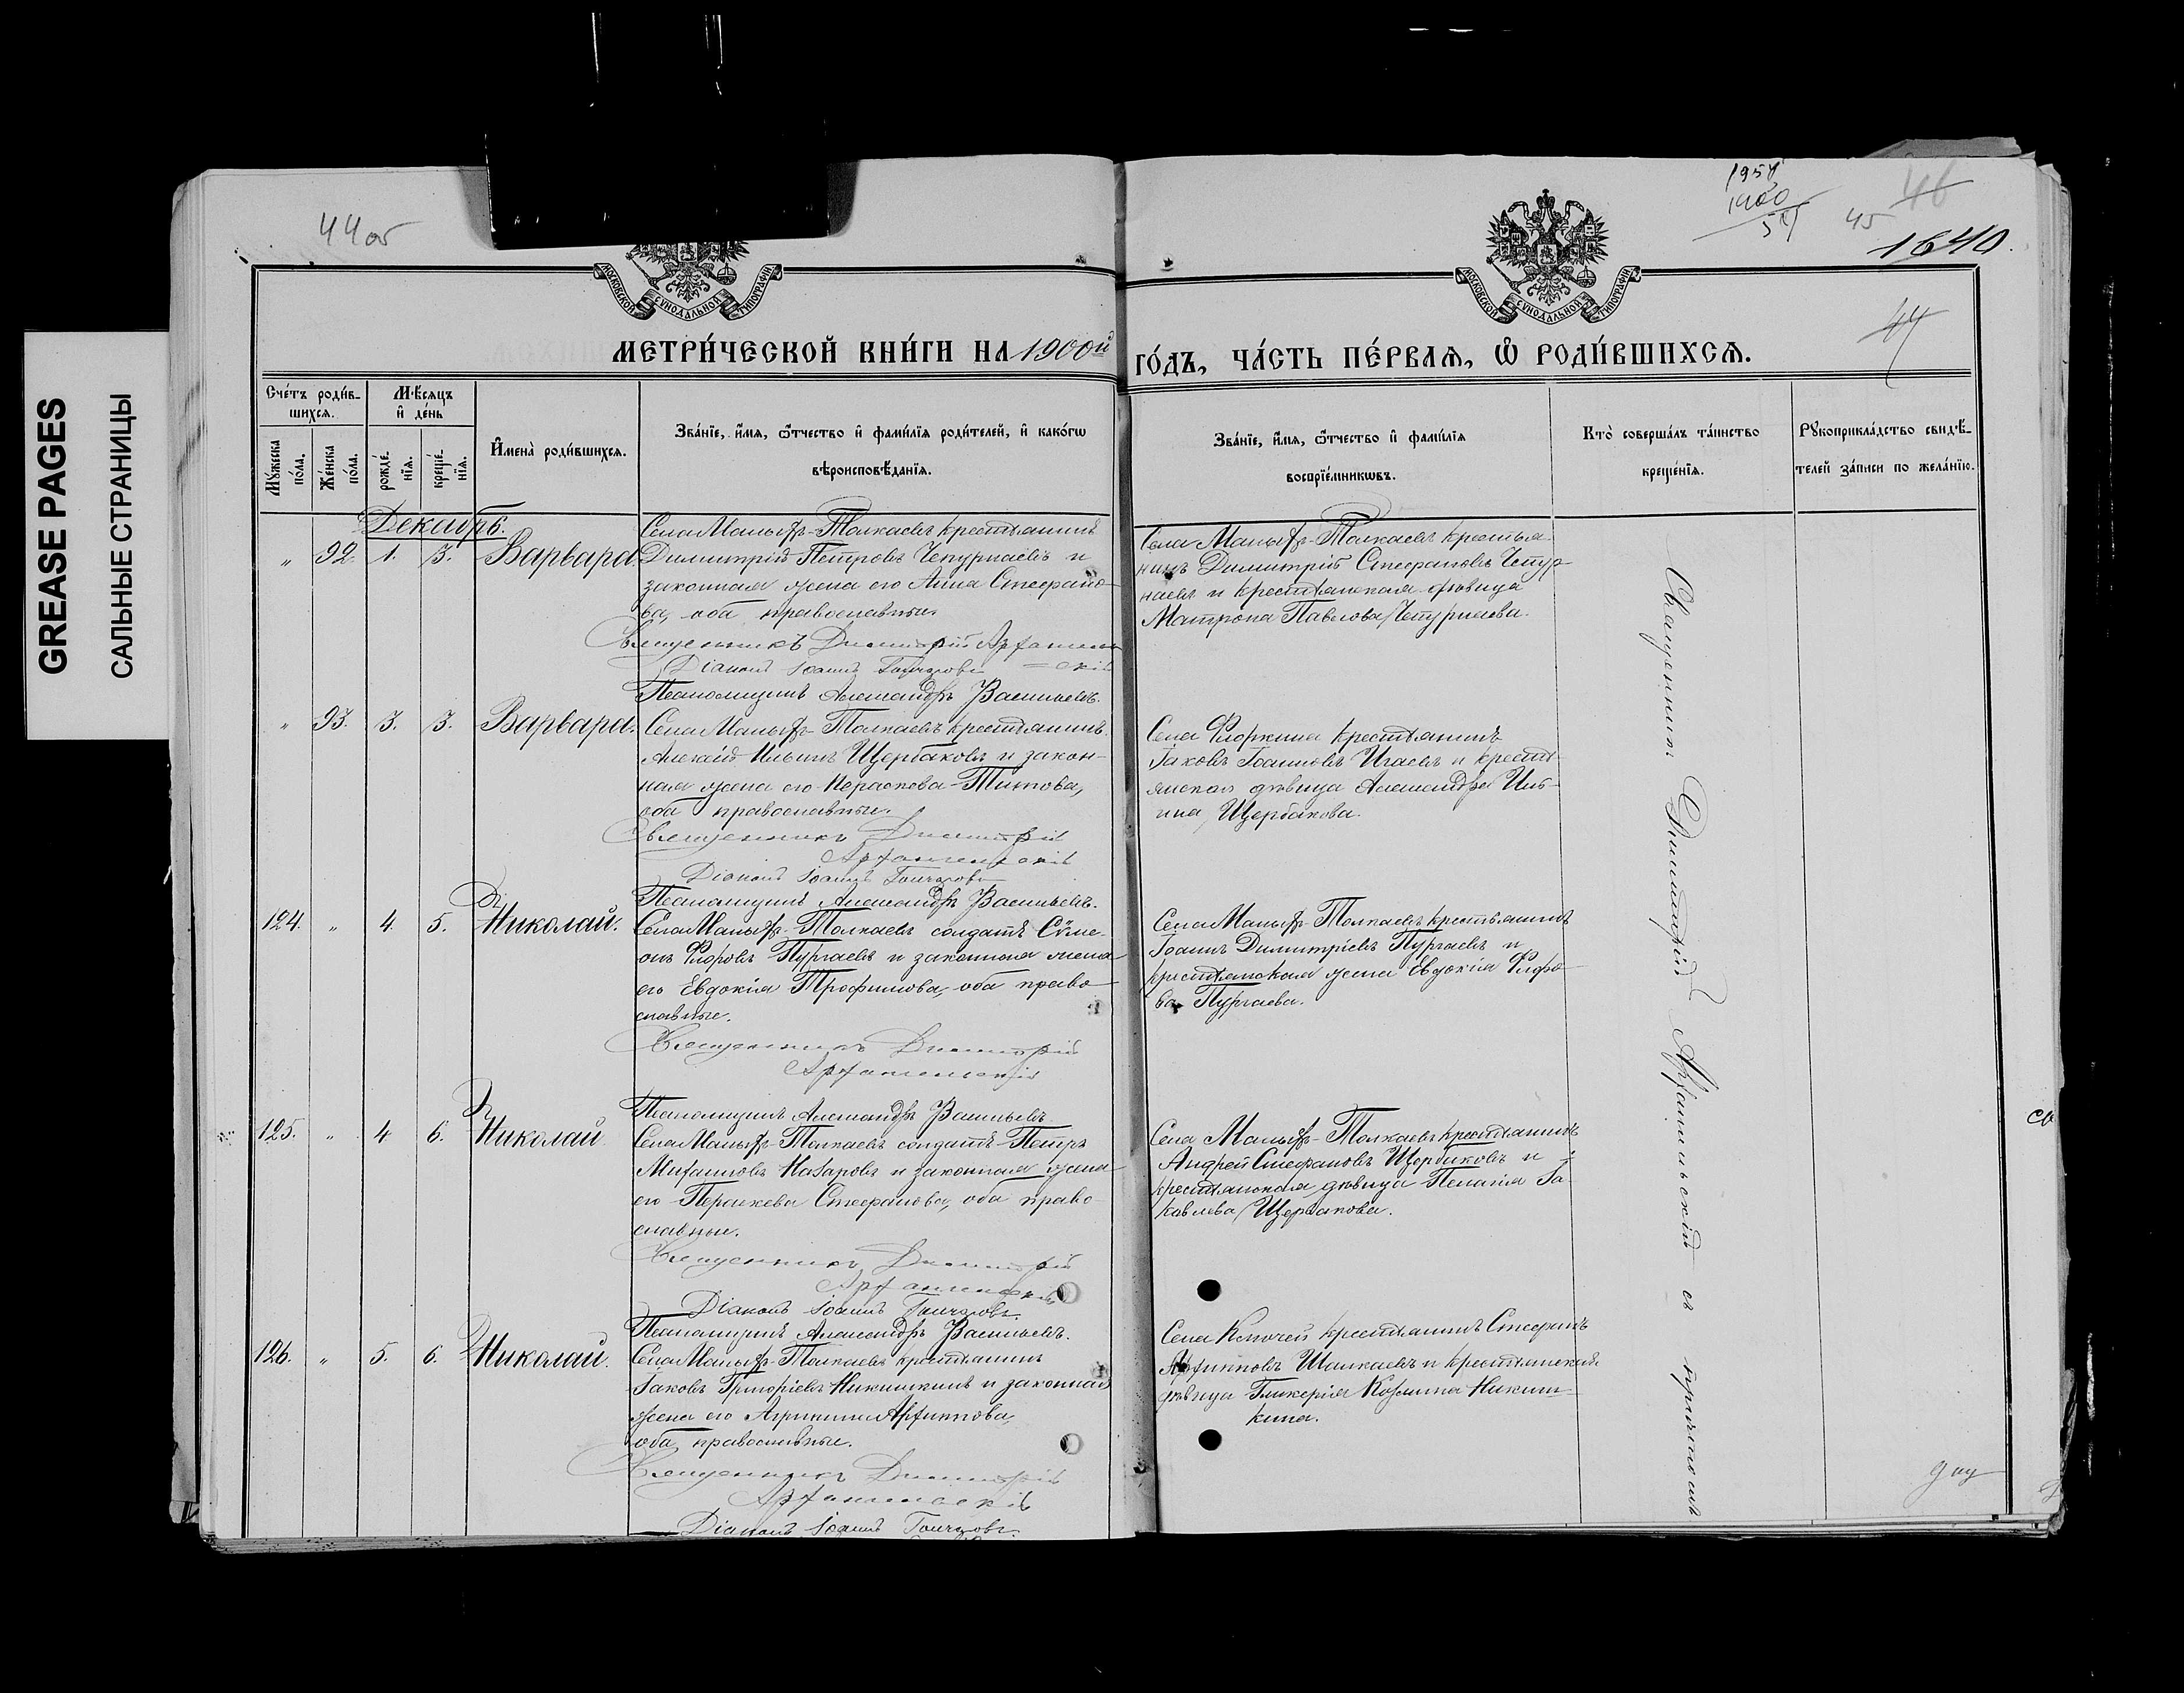 GREASE PAGES
САЛЬНЫЕ СТРАНИЦЫ
44об
1954
1900
54
45
46
1640.
44
МОСКОВСКОЙ СѴНОДАЛЬНОЙ ТИПОГРАФІИ
МОСКОВСКОЙ СѴНОДАЛЬНОЙ ТИПОГРАФІИ
МЕТРИ́ЧЕСКОЙ КНИ́ГИ НА 1900й ГО́ДЪ, ЧА́СТЬ ПЕ́РВАЯ, Ѡ РОДИ́ВШИХСЯ.
Сче́тъ роди́в-
шихся.
Мѣ́сяцъ
и де́нь
Му́жеска по́ла.
Же́нска по́ла.
рожде́-нія.
креще́-нія.
Имена̀ роди́вшихся.
Зва́ніе, имя, ѻтчество и фами́лія роди́телей, и како́гѡ
вѣроисповѣ́данія.
Зва́ніе, имя, ѻтчество и фами́лія
воспріе́мникѡвъ.
Кто̀ соверша́лъ та́инство
креще́нія.
Рукоприкла́дство свидѣ́-
телей за́писи по жела́нію.
Декабрь.
„ 92. 1. 3. Варвара.
Села Малыхъ-Толкаевъ крестьянинъ
Димитрій Петровъ Чепурнаевъ и
законная жена его Анна Стефано-
ва, оба православные.
Священникъ Димитрій Архангель-
=скій
Діаконъ Іоаннъ Гончаровъ
Псаломщикъ Александръ Васильевъ.
Села Малыхъ-Толкаевъ крестья-
нинъ Димитрій Стефановъ Чепур-
наевъ и крестьянская дѣвица
Матрона Павлова Чепурнаева.
„ 93. 3. 3. Варвара.
Села Малыхъ-Толкаевъ крестьянинъ
Алексій Ильинъ Щербаковъ и закон-
ная жена его Параскева Титова,
оба православные.
Священникъ Димитрій
Архангельскій
Діаконъ Іоаннъ Гончаровъ
Псаломщикъ Александръ Васильевъ.
Села крестьянинъ
Іаковъ Іоанновъ Игаевъ и кресть-
янская дѣвица Александра Иль-
ина Щербакова.
124. „ 4. 5. Николай.
Села Малыхъ-Толкаевъ солдатъ Сѵме-
онъ Флоровъ Пургаевъ и законная жена
его Евдокія Трофимова, оба право-
славные.
Священникъ Димитрій
Архангельскій
Псаломщикъ Александръ Васильевъ
Села Малыхъ-Толкаевъ крестьянинъ
Іоаннъ Димитріевъ Пургаевъ и
крестьянская жена Евдокія
Пургаева.
125. „ 4 6. Николай
Села Малыхъ-Толкаевъ солдатъ Петръ
Михаиловъ Назаровъ и законная жена
его Параскева Стефанова, оба право-
славные.
Священникъ Димитрій
Архангельскій
Діаконъ Іоаннъ Гончаровъ.
Псаломщикъ Александръ Васильевъ.
Села Малыхъ-Толкаевъ крестьянинъ
Андрей Стефановъ Щербаковъ и
крестьянская дѣвица Пелагія Іа-
ковлева Щербакова.
126. „ 5. 6. Николай.
Села Малыхъ-Толкаевъ крестьянинъ
Іаковъ Григоріевъ Никишкинъ и законная
жена его Агриппина Архиппова,
оба православные.
Священникъ Димитрій
Архангельскій
Діаконъ Іоаннъ Гончаровъ.
Села Ключей крестьянинъ Стефанъ
Архипповъ Шалкаевъ и крестьянская
дѣвица Гликерія Козмина Никиш-
кина.
Священникъ Димитрій Архангельскій съ причтомъ